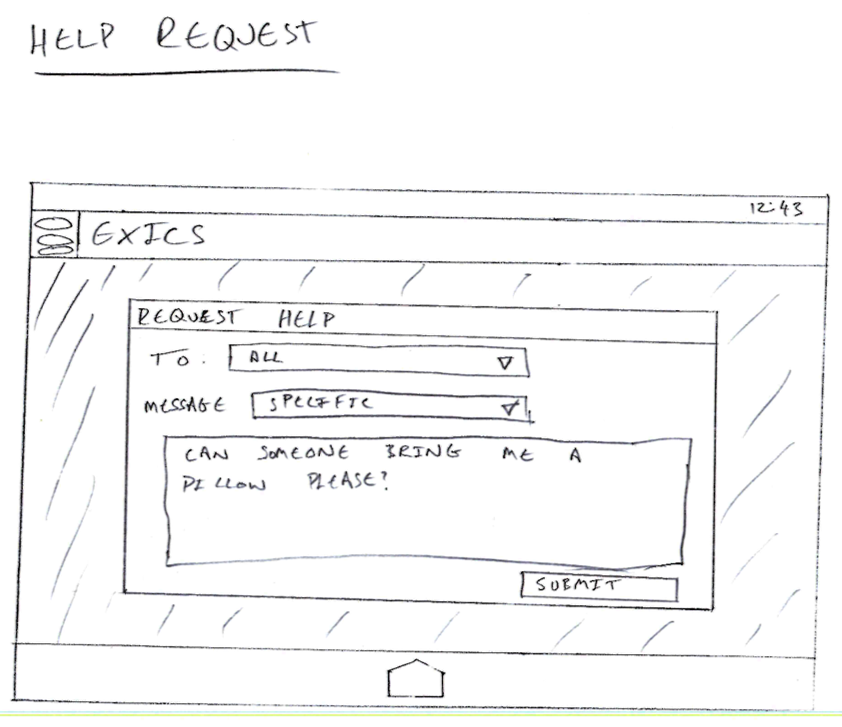 HELP REQUEST
12:43
EXICS
REQUEST HELP
TO: ALL
MESSAGE SPECIFIC
CAN SOMEONE BRING ME A
PILLOW PLEASE?
SUBMIT